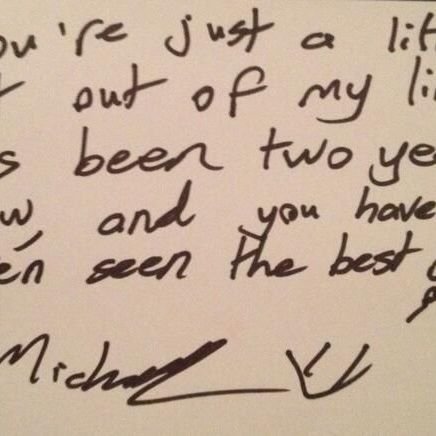 ou're just a lit
t out of my li
s been two ye
w, and you have
en seen the best
Mich